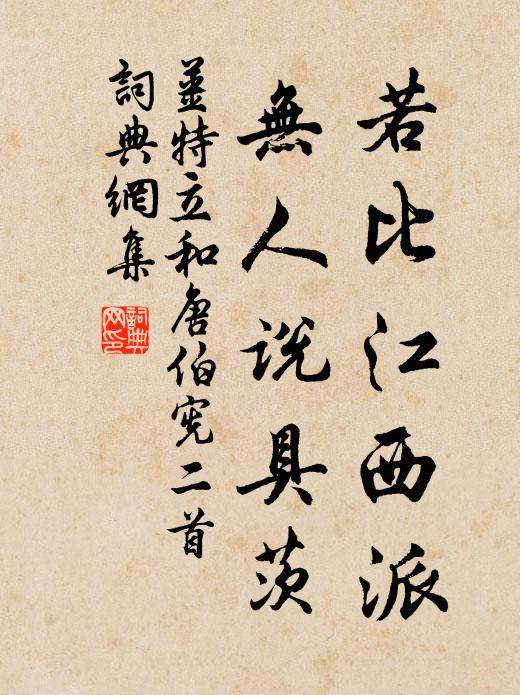 若比江西派
無人說具茨
薑特立和唐伯宪二首
詞典網集
詞典
网印